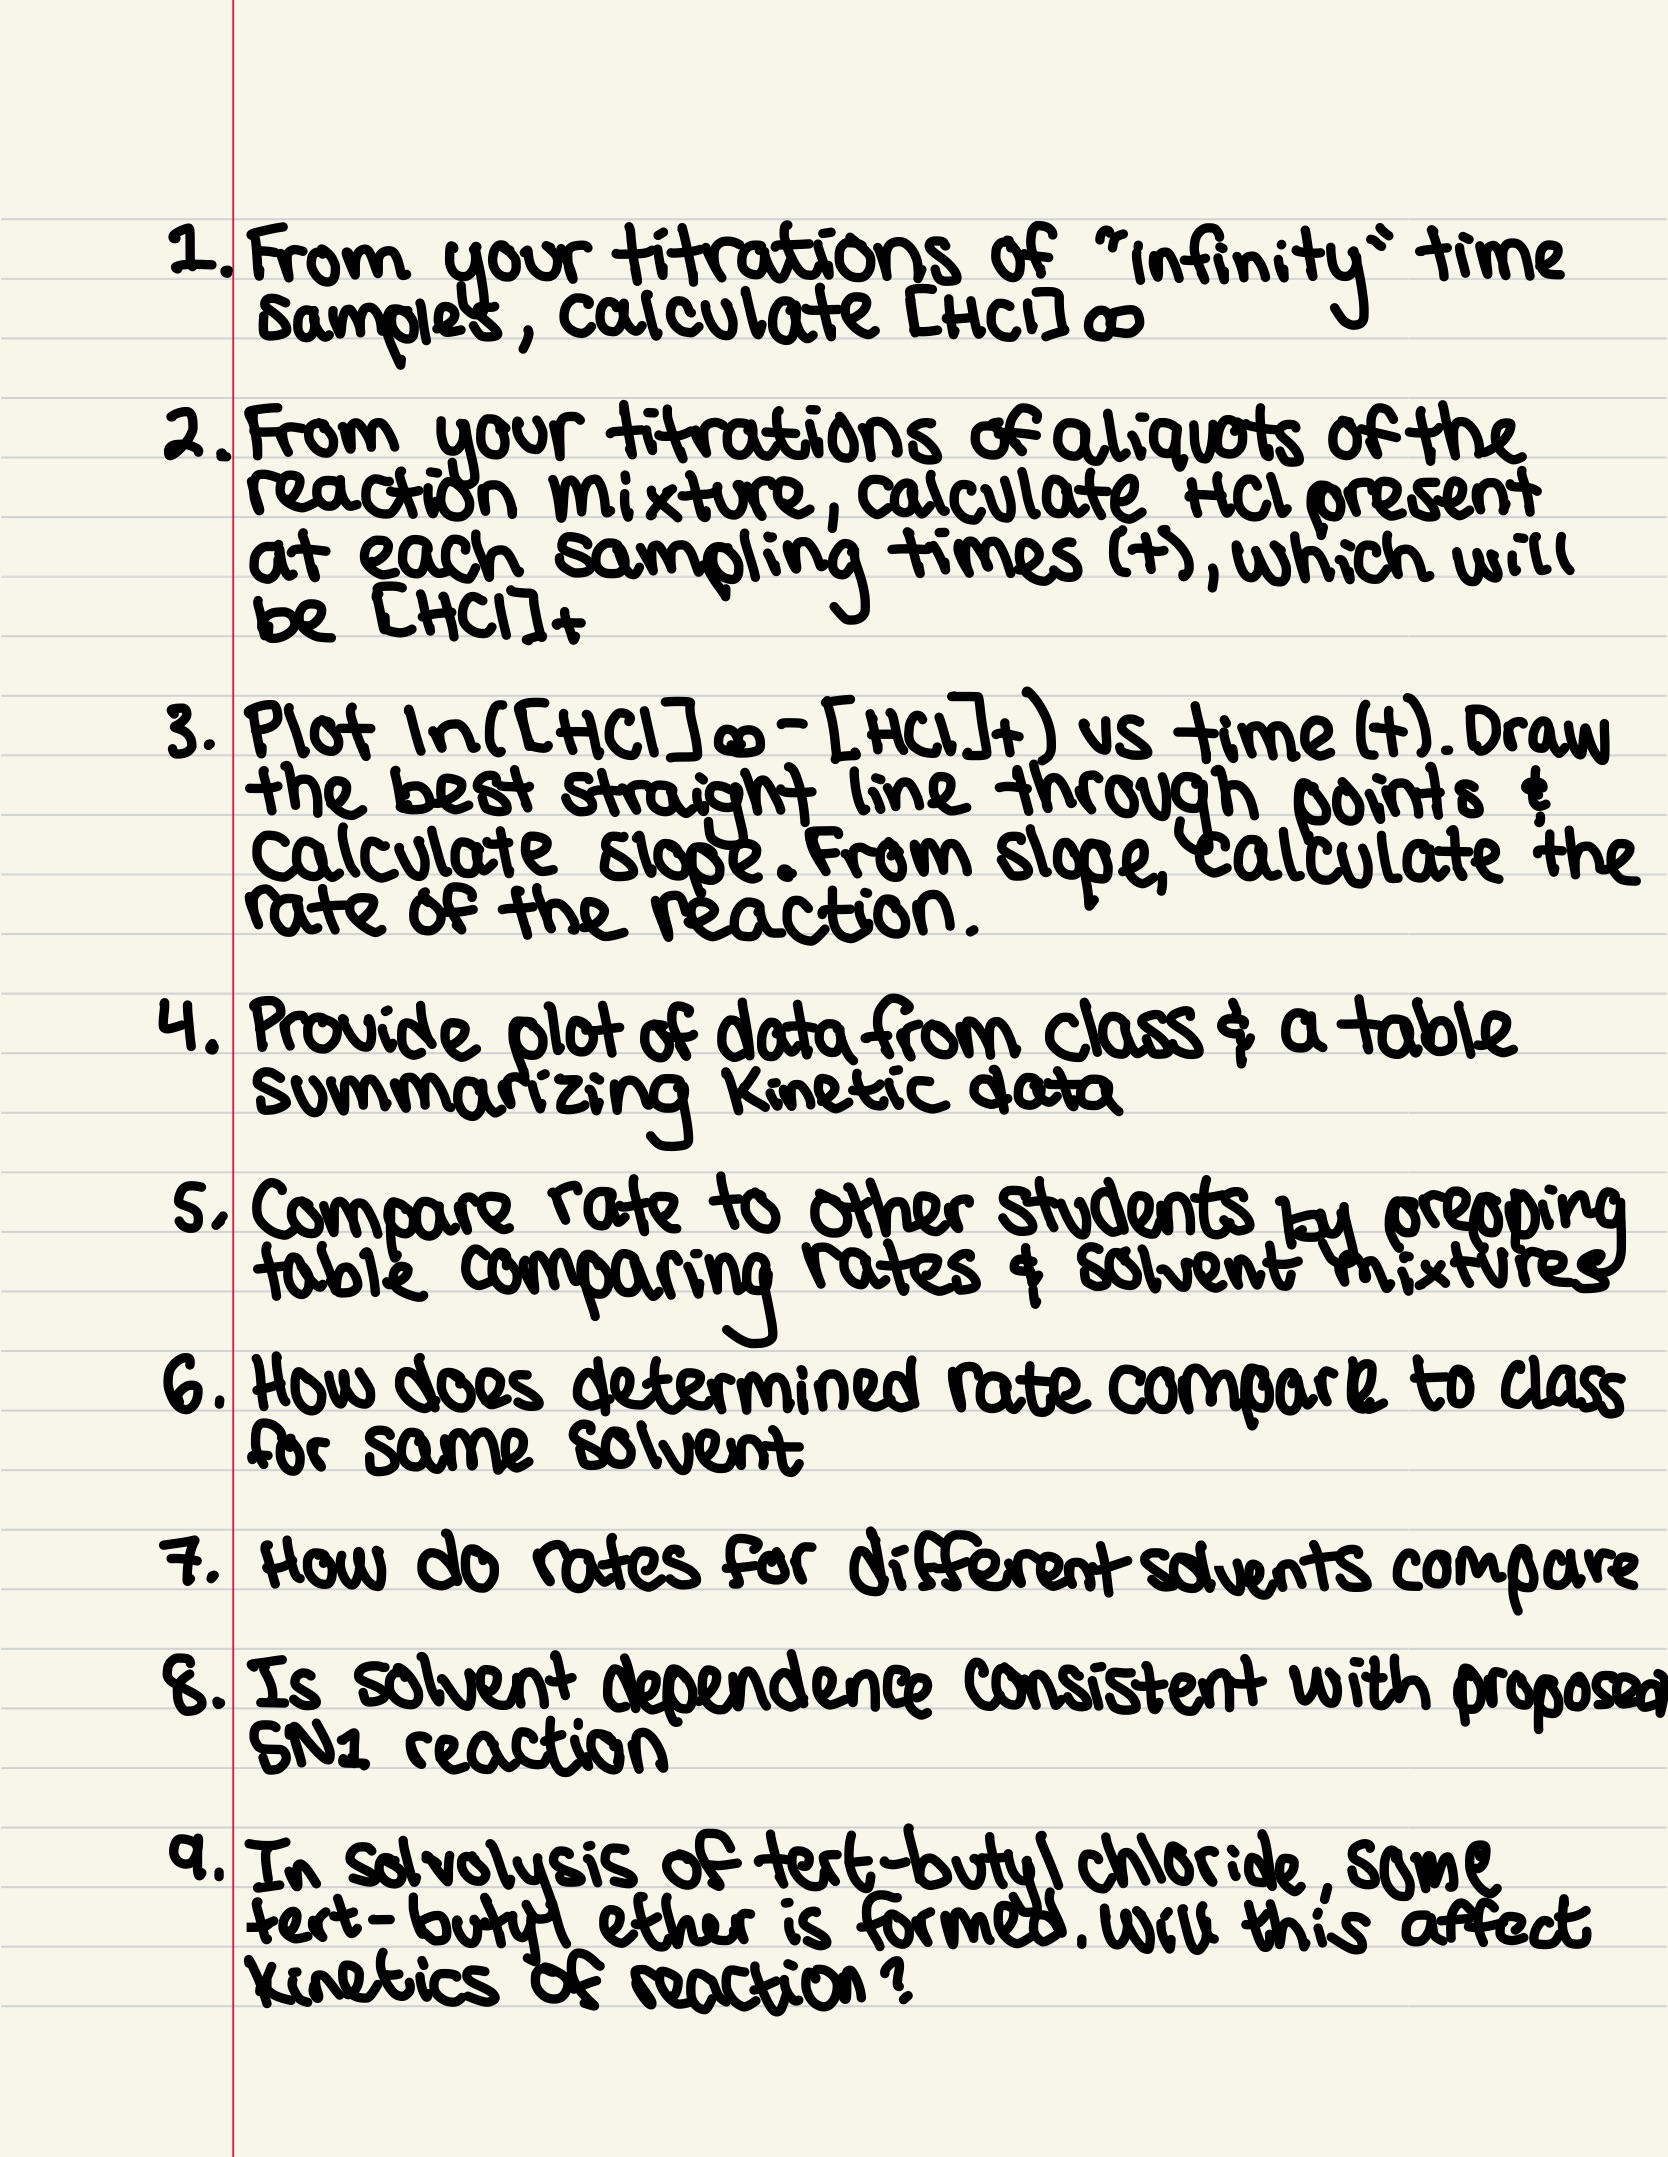 1. From your titrations of "infinity" time
samples, calculate [HCl]∞
2. From your titrations of aliquots of the
reaction mixture, calculate HCl present
at each sampling times (t), which will
be [HCl]t
3. Plot ln([HCl]∞-[HCl]t) vs time (t). Draw
the best straight line through points &
calculate slope. From slope, calculate the
rate of the reaction.
4. Provide plot of data from class & a table
summarizing kinetic data
5. Compare rate to other students by prepping
table comparing rates & solvent mixtures
6. How does determined rate compare to class
for same solvent
7. How do rates for different solvents compare
8. Is solvent dependence consistent with proposed
SN1 reaction
9. In solvolysis of tert-butyl chloride, some
tert-butyl ether is formed. Will this affect
kinetics of reaction?